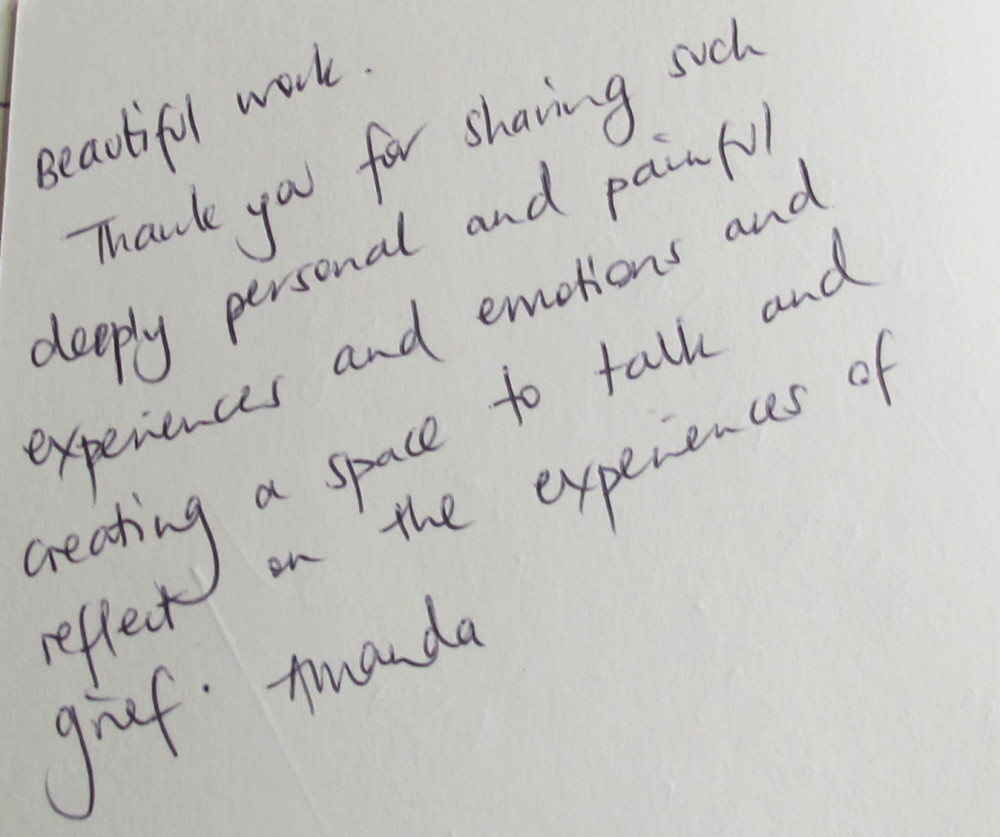 Beautiful work.
Thank you for sharing such
deeply personal and painful
experiences and emotions and
creating a space to talk and
reflect on the experiences of
grief. Amanda